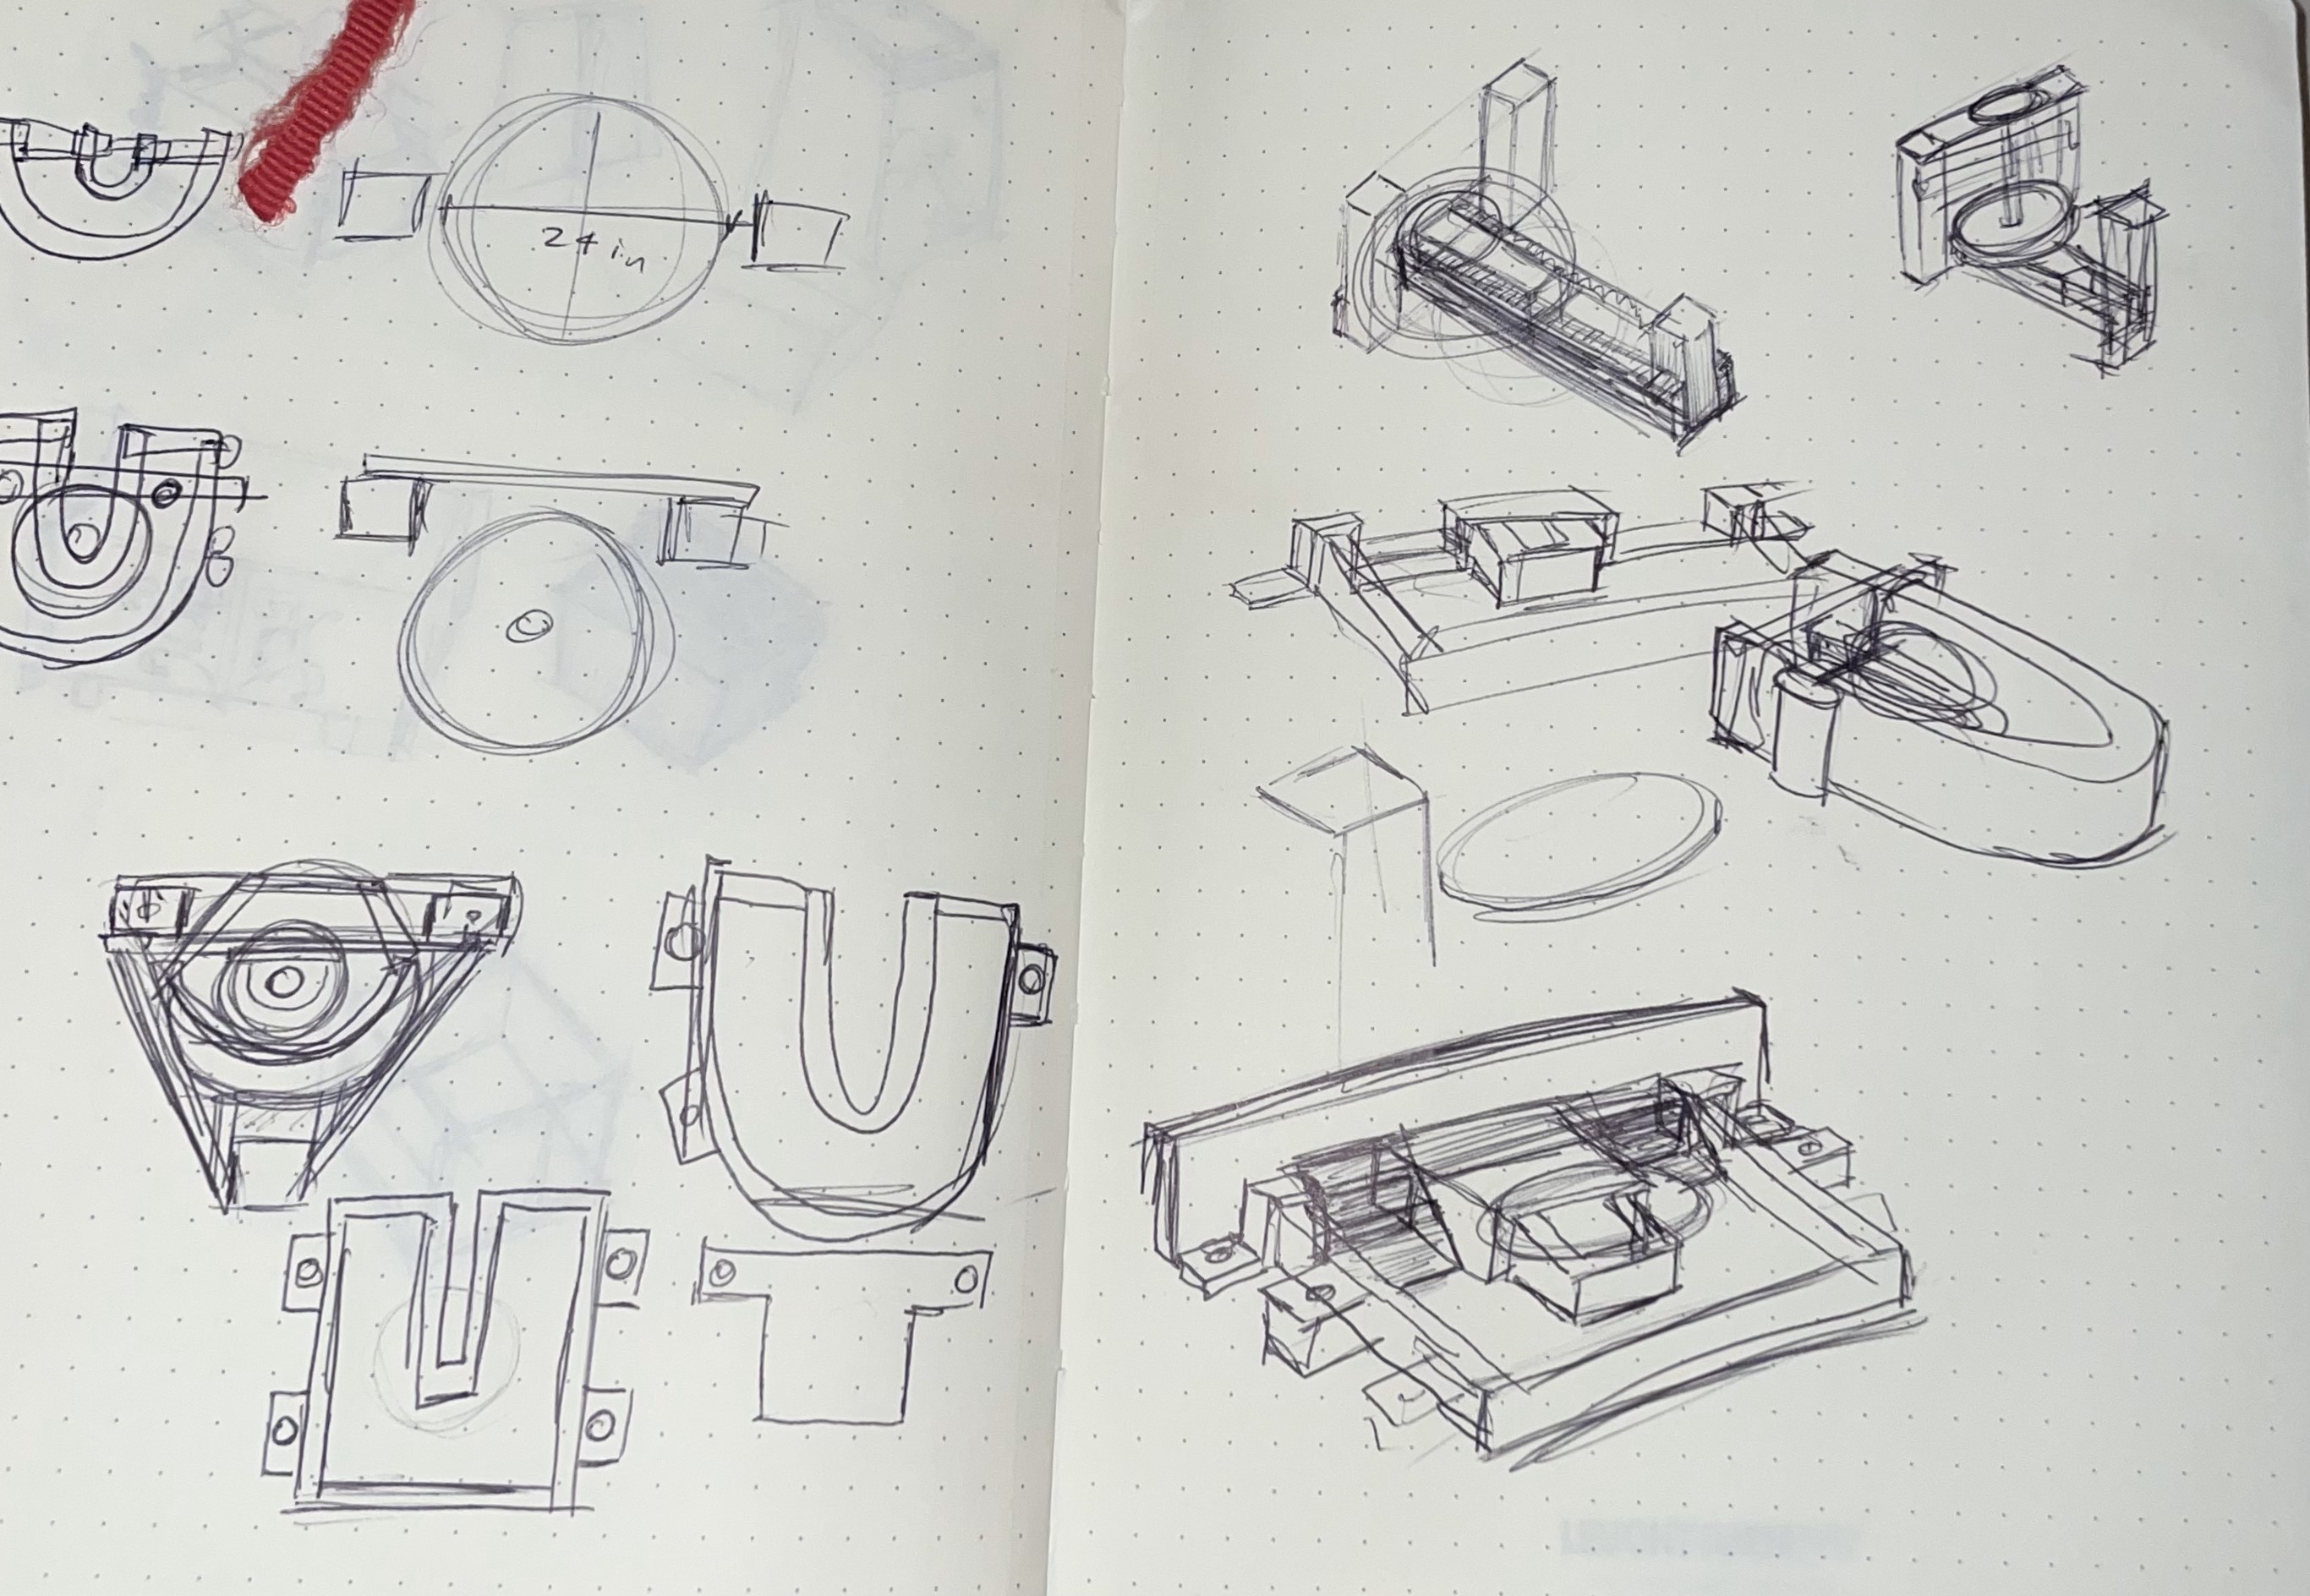 24 in